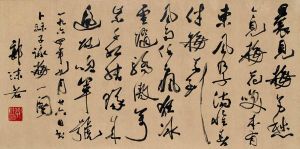 曩見梅花愁
今見梅花笑本有
東風孕滿懷春
伴梅花到
風雨任瘋狂冰
雪隨驕傲萬
紫千紅結隊來
遍地吹軍號
一九六四年 月廿六日書
卜算子詠梅一闋
郭沫若